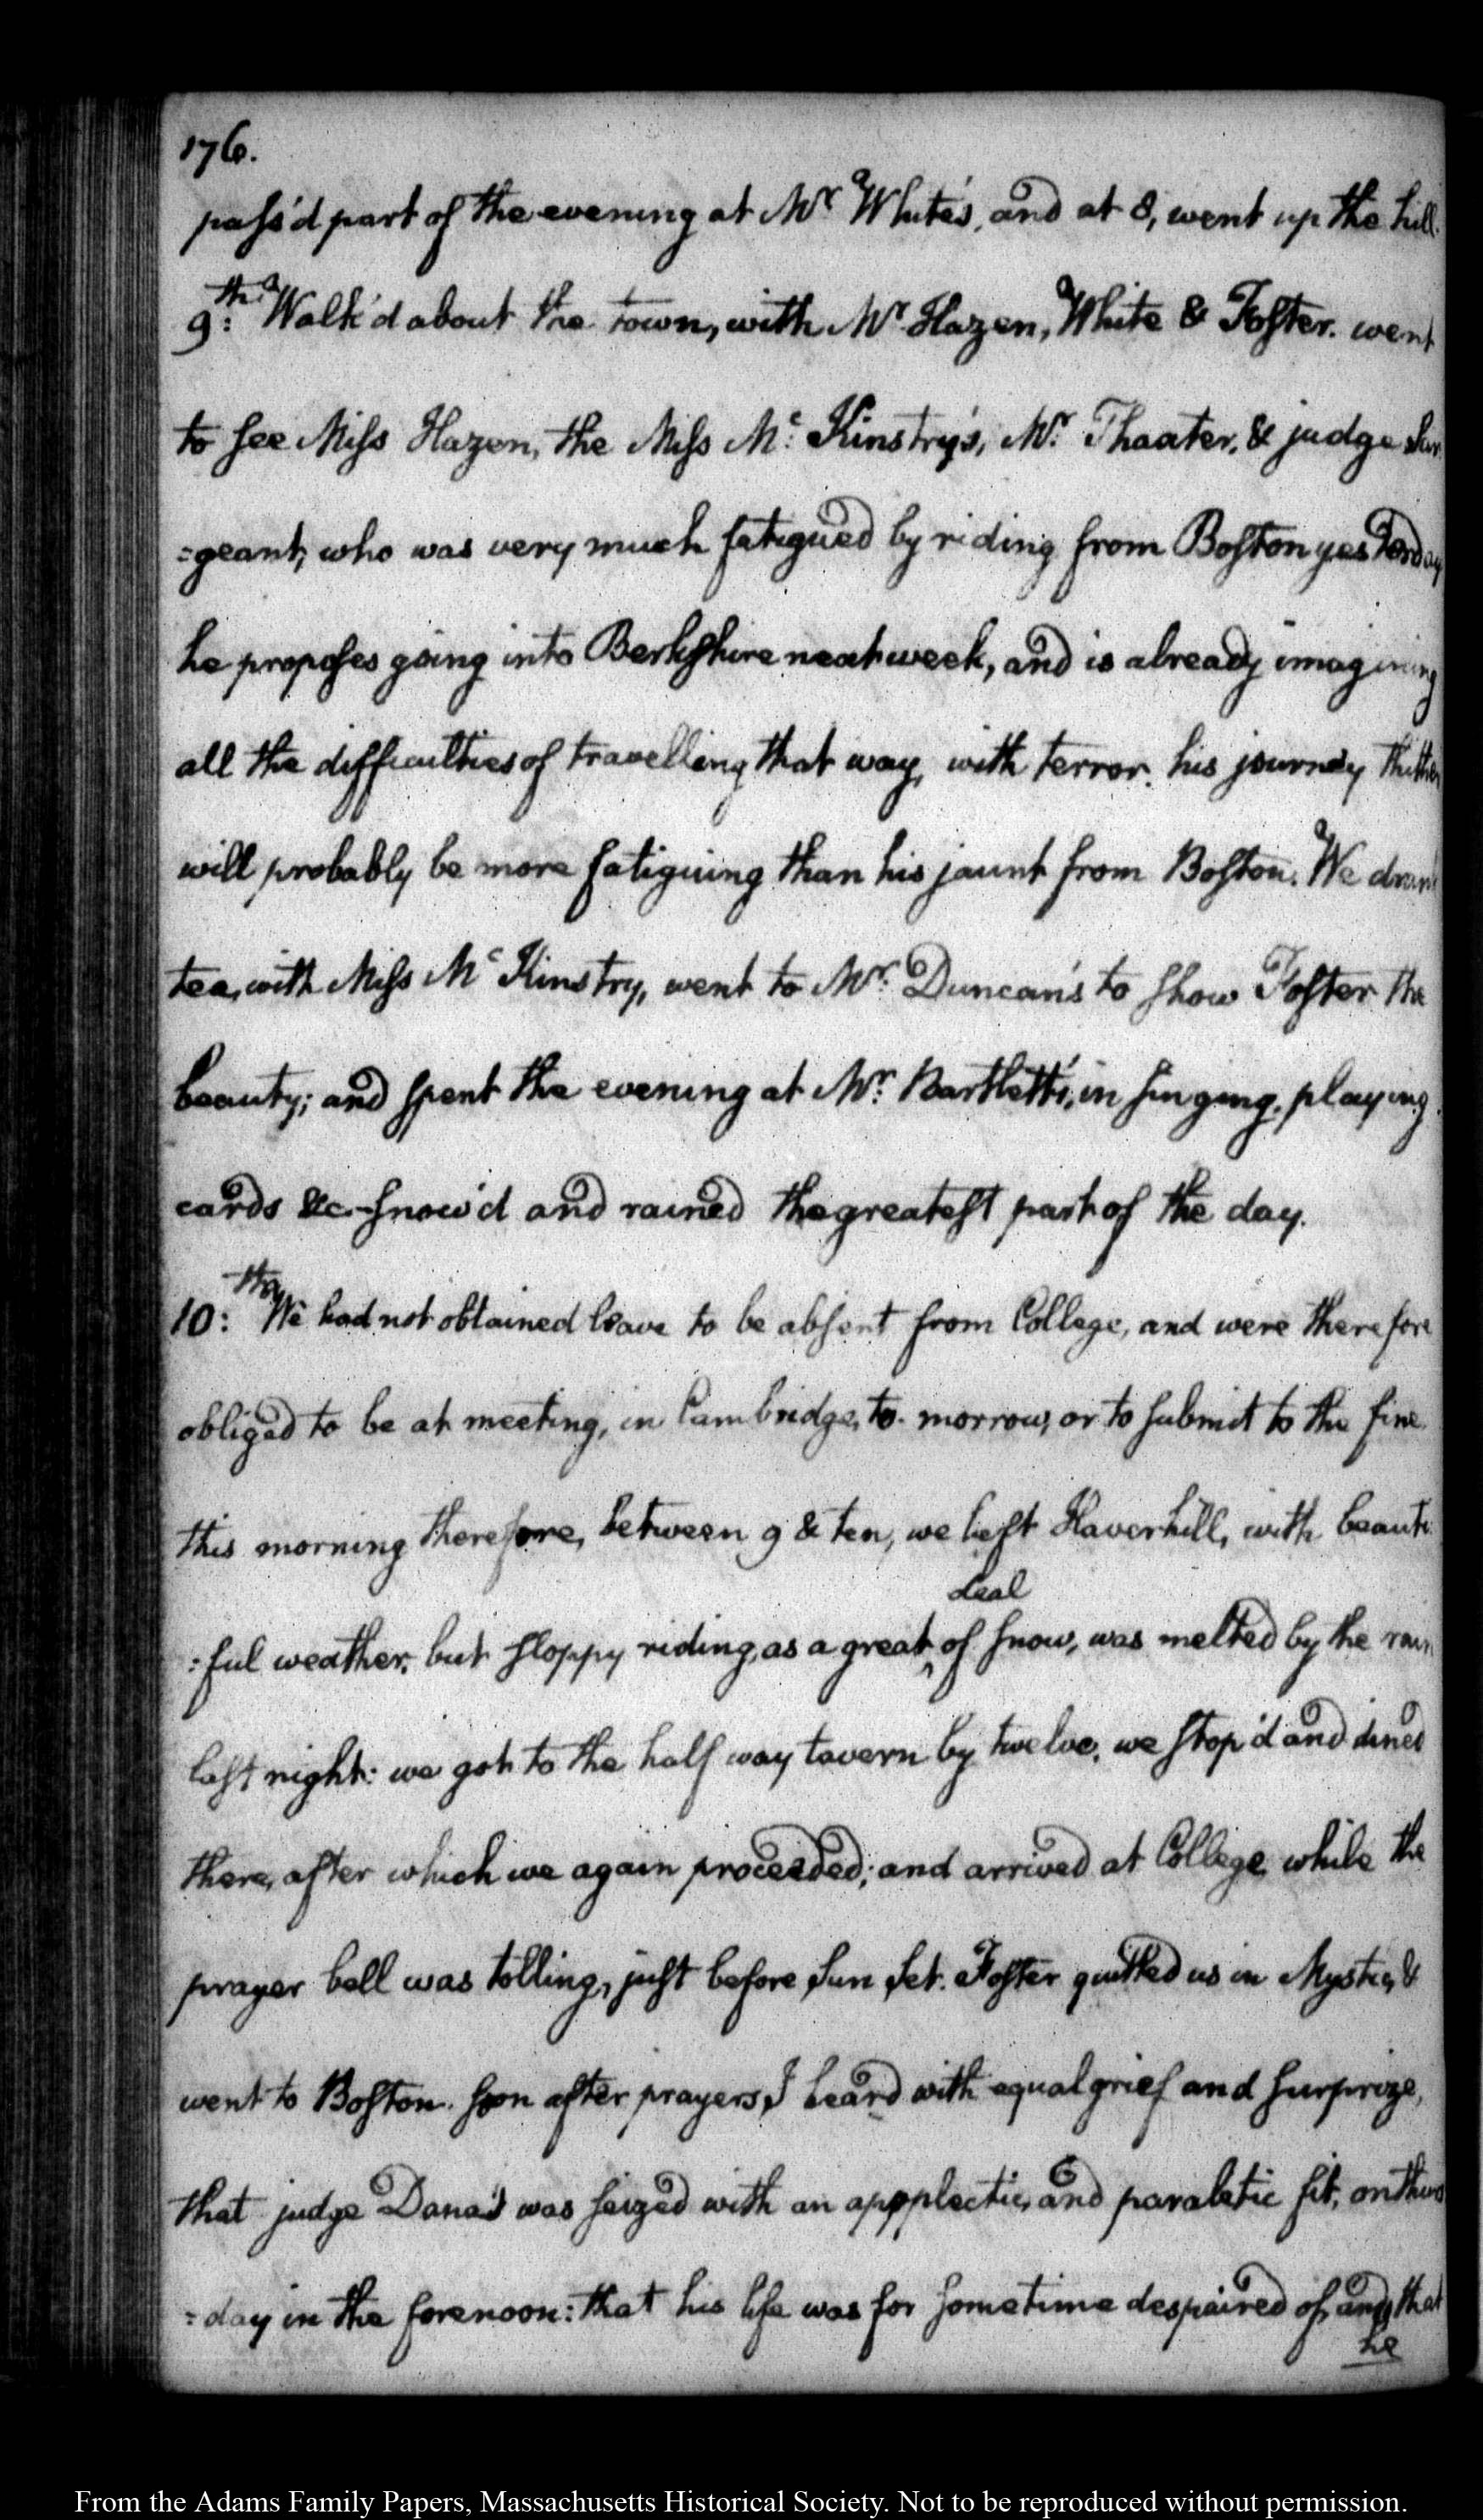 176.
pass'd part of the evening at Mr. White's, and at 8, went up the hill.
9:th Walk'd about the town, with Mr. Hazen, White & Foster. went
to see Miss Hazen, the Miss Mc: Kinstry's, Mr. Thaxter, & judge Ser
=geant, who was very much fatigued by riding from Boston yesterday
he proposes going into Berkshire next week, and is already imagining
all the difficulties of travelling that way, with terror. his journey thither
will probably be more fatiguing than his jaunt from Boston. We drank
tea, with Miss Mc Kinstry, went to Mr. Duncan's to show Foster the
beauty; and spent the evening at Mr. Bartlett's, in singing, playing
cards &c. snow'd and rained the greatest part of the day.
10:th We had not obtained leave to be absent from College, and were therefore
obliged to be at meeting, in Cambridge, to-morrow, or to submit to the fine
this morning therefore, between 9 & ten, we left Haverhill, with beauti
=ful weather, but sloppy riding, as a great deal of snow, was melted by the rain
last night: we got to the half way tavern by twelve, we stop'd and dined
there, after which we again proceeded; and arrived at College while the
prayer bell was tolling, just before Sun set. Foster quitted us in Mystic, &
went to Boston. soon after prayers, I heard with equal grief and surprize,
that judge Dana was seized with an appplectic, and paraletic fit, on thurs
=day in the forenoon: that his life was for sometime despaired of, and that
he
From the Adams Family Papers, Massachusetts Historical Society. Not to be reproduced without permission.